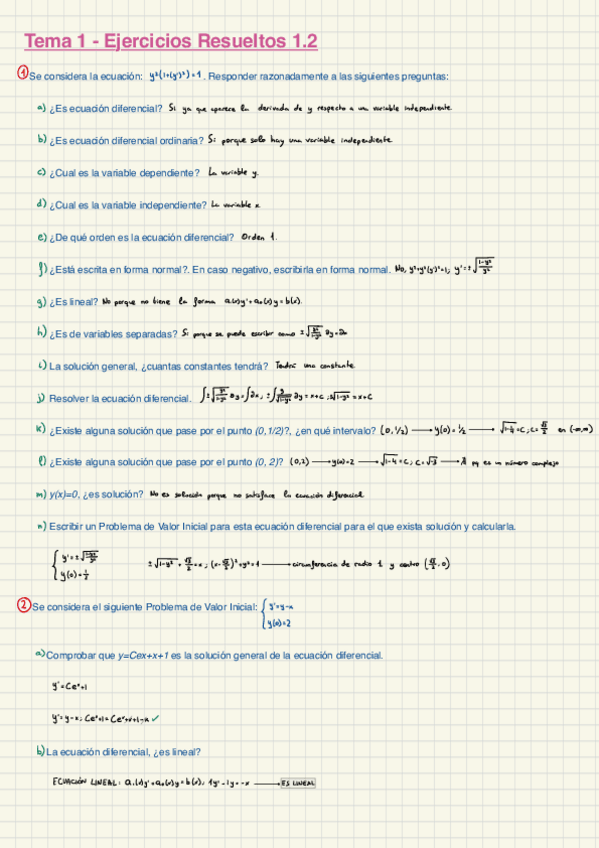 Tema 1 - Ejercicios Resueltos 1.2
① Se considera la ecuación: y²(1+(y')²)=1. Responder razonadamente a las siguientes preguntas:
a) ¿Es ecuación diferencial? Si ya que aparece la derivada de y respecto a una variable independiente.
b) ¿Es ecuación diferencial ordinaria? Si porque solo hay una variable independiente
c) ¿Cual es la variable dependiente? La variable y.
d) ¿Cual es la variable independiente? La variable x
e) ¿De qué orden es la ecuación diferencial? Orden 1.
f) ¿Está escrita en forma normal?. En caso negativo, escribirla en forma normal. No, y²+y²(y')²=1; y'=±√((1-y²)/y²)
g) ¿Es lineal? No porque no tiene la forma a₁(x)y'+a₀(x)y=b(x).
h) ¿Es de variables separadas? Si porque se puede escribir como ±√(y²/(1-y²)) dy=dx
i) La solución general, ¿cuantas constantes tendrá? Tendrá una constante
j) Resolver la ecuación diferencial. ∫±√(y²/(1-y²)) dy=∫dx; ±∫y/√(1-y²) dy=x+C; ±√(1-y²)=x+C
k) ¿Existe alguna solución que pase por el punto (0,1/2)?, ¿en qué intervalo? (0,1/2) → y(0)=1/2 → √(1-¼)=C; C=√3/2 en (-∞,∞)
l) ¿Existe alguna solución que pase por el punto (0, 2)? (0,2) → y(0)=2 → √(1-4)=C; C=√-3 → ∄ pq es un número complejo
m) y(x)=0, ¿es solución? No es solución porque no satisface la ecuación diferencial
n) Escribir un Problema de Valor Inicial para esta ecuación diferencial para el que exista solución y calcularla.
{ y'=±√((1-y²)/y²)
y(0)=1/2
±√(1-y²)+√3/2=x; (x-√3/2)²+y²=1 → circunferencia de radio 1 y centro (√3/2,0)
② Se considera el siguiente Problema de Valor Inicial: { y'=y-x
y(0)=2
a) Comprobar que y=Cex+x+1 es la solución general de la ecuación diferencial.
y'=Ceˣ+1
y'=y-x; Ceˣ+1=Ceˣ+x+1-x ✓
b) La ecuación diferencial, ¿es lineal?
ECUACIÓN LINEAL: a₁(x)y'+a₀(x)y=b(x); 1y'-1y=-x → ES LINEAL